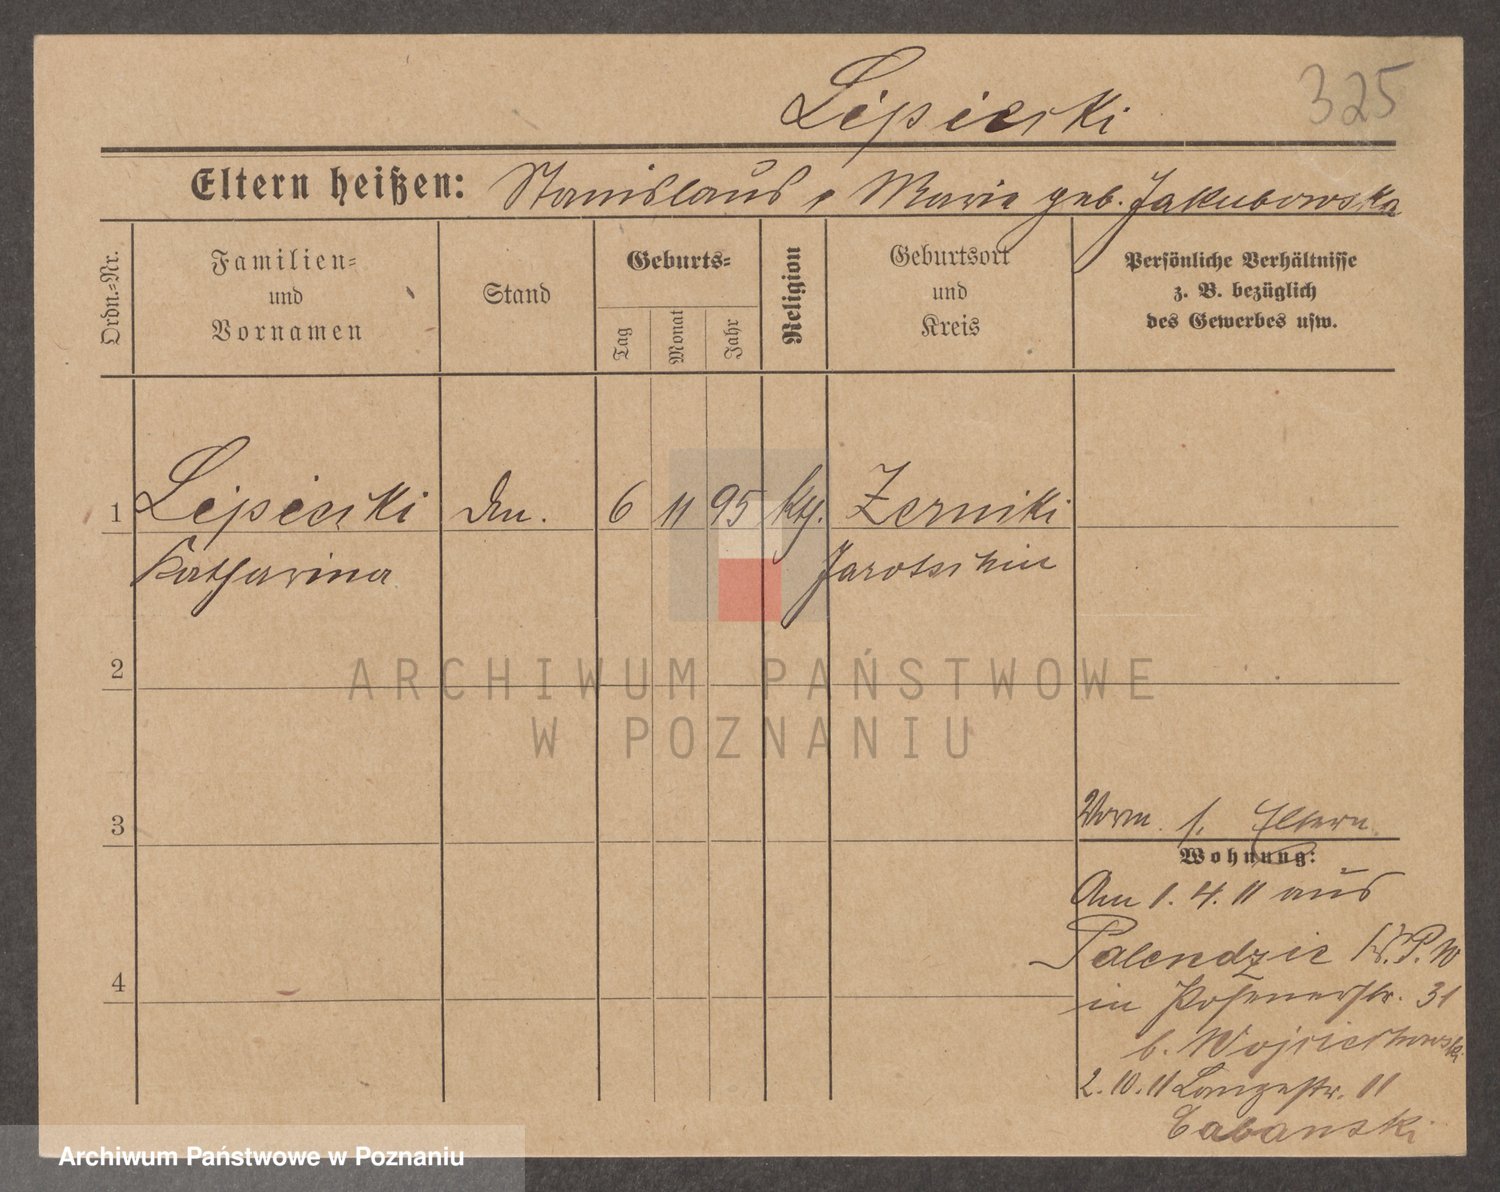 325
Lipierski
Eltern heißen: Stanislaus, Marie geb. Jakubowska
Ordn.=Nr.
Familien=
und
Vornamen
Stand
Geburts=
Tag
Monat
Jahr
Religion
Geburtsort
und
Kreis
Persönliche Verhältnisse
z. B. bezüglich
des Gewerbes usw.
1 Lipierski 6 11 95 kth. Zerniki
Katharina Jarotschin
2
3
Vorm. s. Eltern.
Wohnung:
Am 1. 4. 11 aus
Palendzie P. W
in Posenerstr. 31
b. Wojciechowski
2. 10. 11 Langestr. 11
Cabanski
4
ARCHIWUM PAŃSTWOWE
W POZNANIU
Archiwum Państwowe w Poznaniu